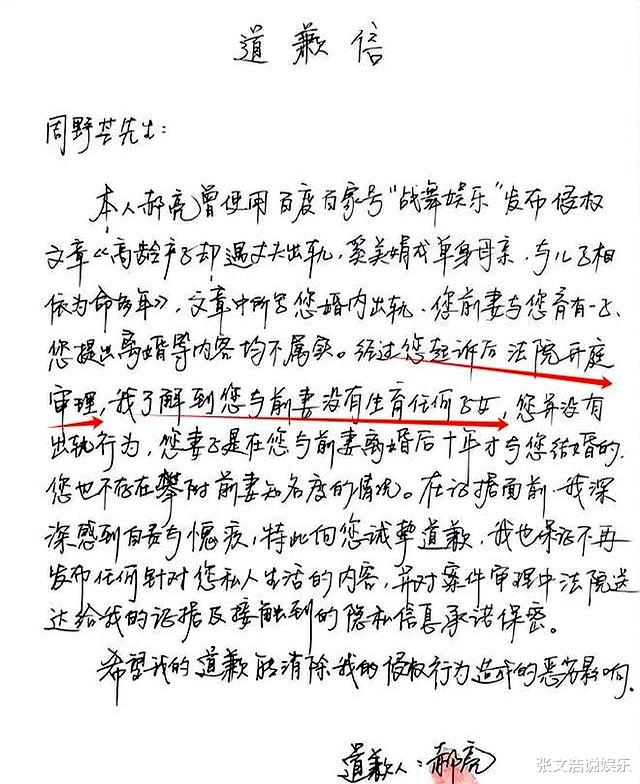 道歉信
周野芒先生:
本人郝亮曾使用百度百家号"战舞娱乐"发布侵权
文章《高龄产子却遇丈夫出轨,奚美娟成单身母亲,与儿子相
依为命多年》,文章中所写您婚内出轨、您前妻与您育有一子、
您提出离婚等内容均不属实。经过您起诉后法院开庭
审理,我了解到您与前妻没有生育任何子女,您并没有
出轨行为,您妻子是在您与前妻离婚后十年才与您结婚的,
您也不存在攀附前妻知名度的情况。在证据面前,我深
深感到自责与愧疚,特此向您诚挚道歉,我也保证不再
发布任何针对您私人生活的内容,并对案件审理中法院送
达给我的证据及接触到的隐私信息承诺保密。
希望我的道歉能消除我的侵权行为造成的恶劣影响。
道歉人:郝亮
张文浩说娱乐